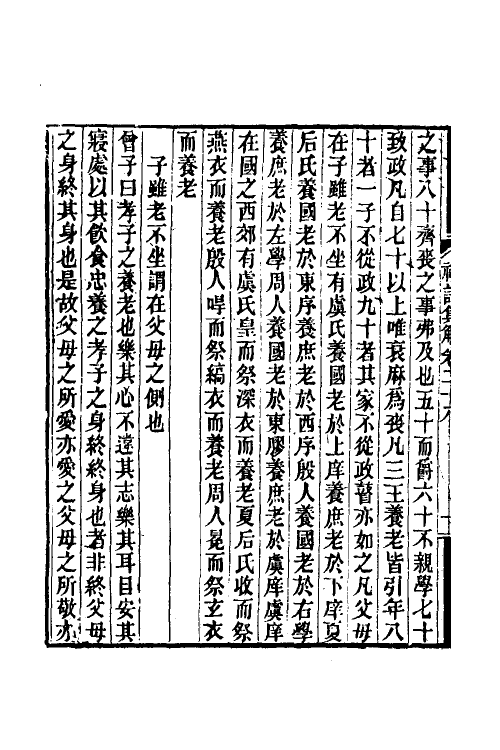 之事八十齊喪之事弗及也五十而爵六十不親學七十
致政凡自七十以上唯衰麻爲喪凡三王養老皆引年八
十者一子不從政九十者其家不從政瞽亦如之凡父母
在子雖老不坐有虞氏養國老於上庠養庶老於下庠夏
后氏養國老於東序養庶老於西序殷人養國老於右學
養庶老於左學周人養國老於東膠養庶老於虞庠虞庠
在國之西郊有虞氏皇而祭深衣而養老夏后氏收而祭
燕衣而養老殷人冔而祭縞衣而養老周人冕而祭玄衣
而養老
子雖老不坐謂在父母之側也
曾子曰孝子之養老也樂其心不違其志樂其耳目安其
寢處以其飲食忠養之孝子之身終終身也者非終父母
之身終其身也是故父母之所愛亦愛之父母之所敬亦